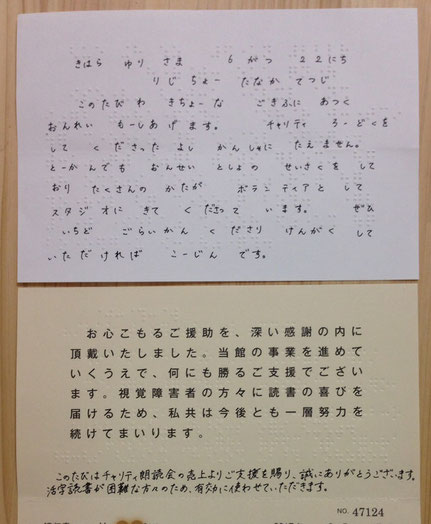 きはら ゆり さま 6がつ 22にち
りじちょー たなか てつじ
このたびわ きちょーな ごきふに あつく
おんれい もーしあげます。 チャリティ ろーどくを
して くださった よし かんしゃに たえません。
とーかんでも おんせい としょの せいさくを して
おり たくさんの かたが ボランティアと して
スタジオに きて くださって います。 ぜひ
いちど ごらいかん くださり けんがく して
いただければ こーじん です。
お心こもるご援助を、深い感謝の内に
頂戴いたしました。当館の事業を進めて
いくうえで、何にも勝るご支援でござい
ます。視覚障害者の方々に読書の喜びを
届けるため、私共は今後とも一層努力を
続けてまいります。
このたびはチャリティ朗読会の売上よりご支援を賜り、誠にありがとうございます。
活字読書が困難な方々のため、有効に使わせていただきます。
NO. 47124